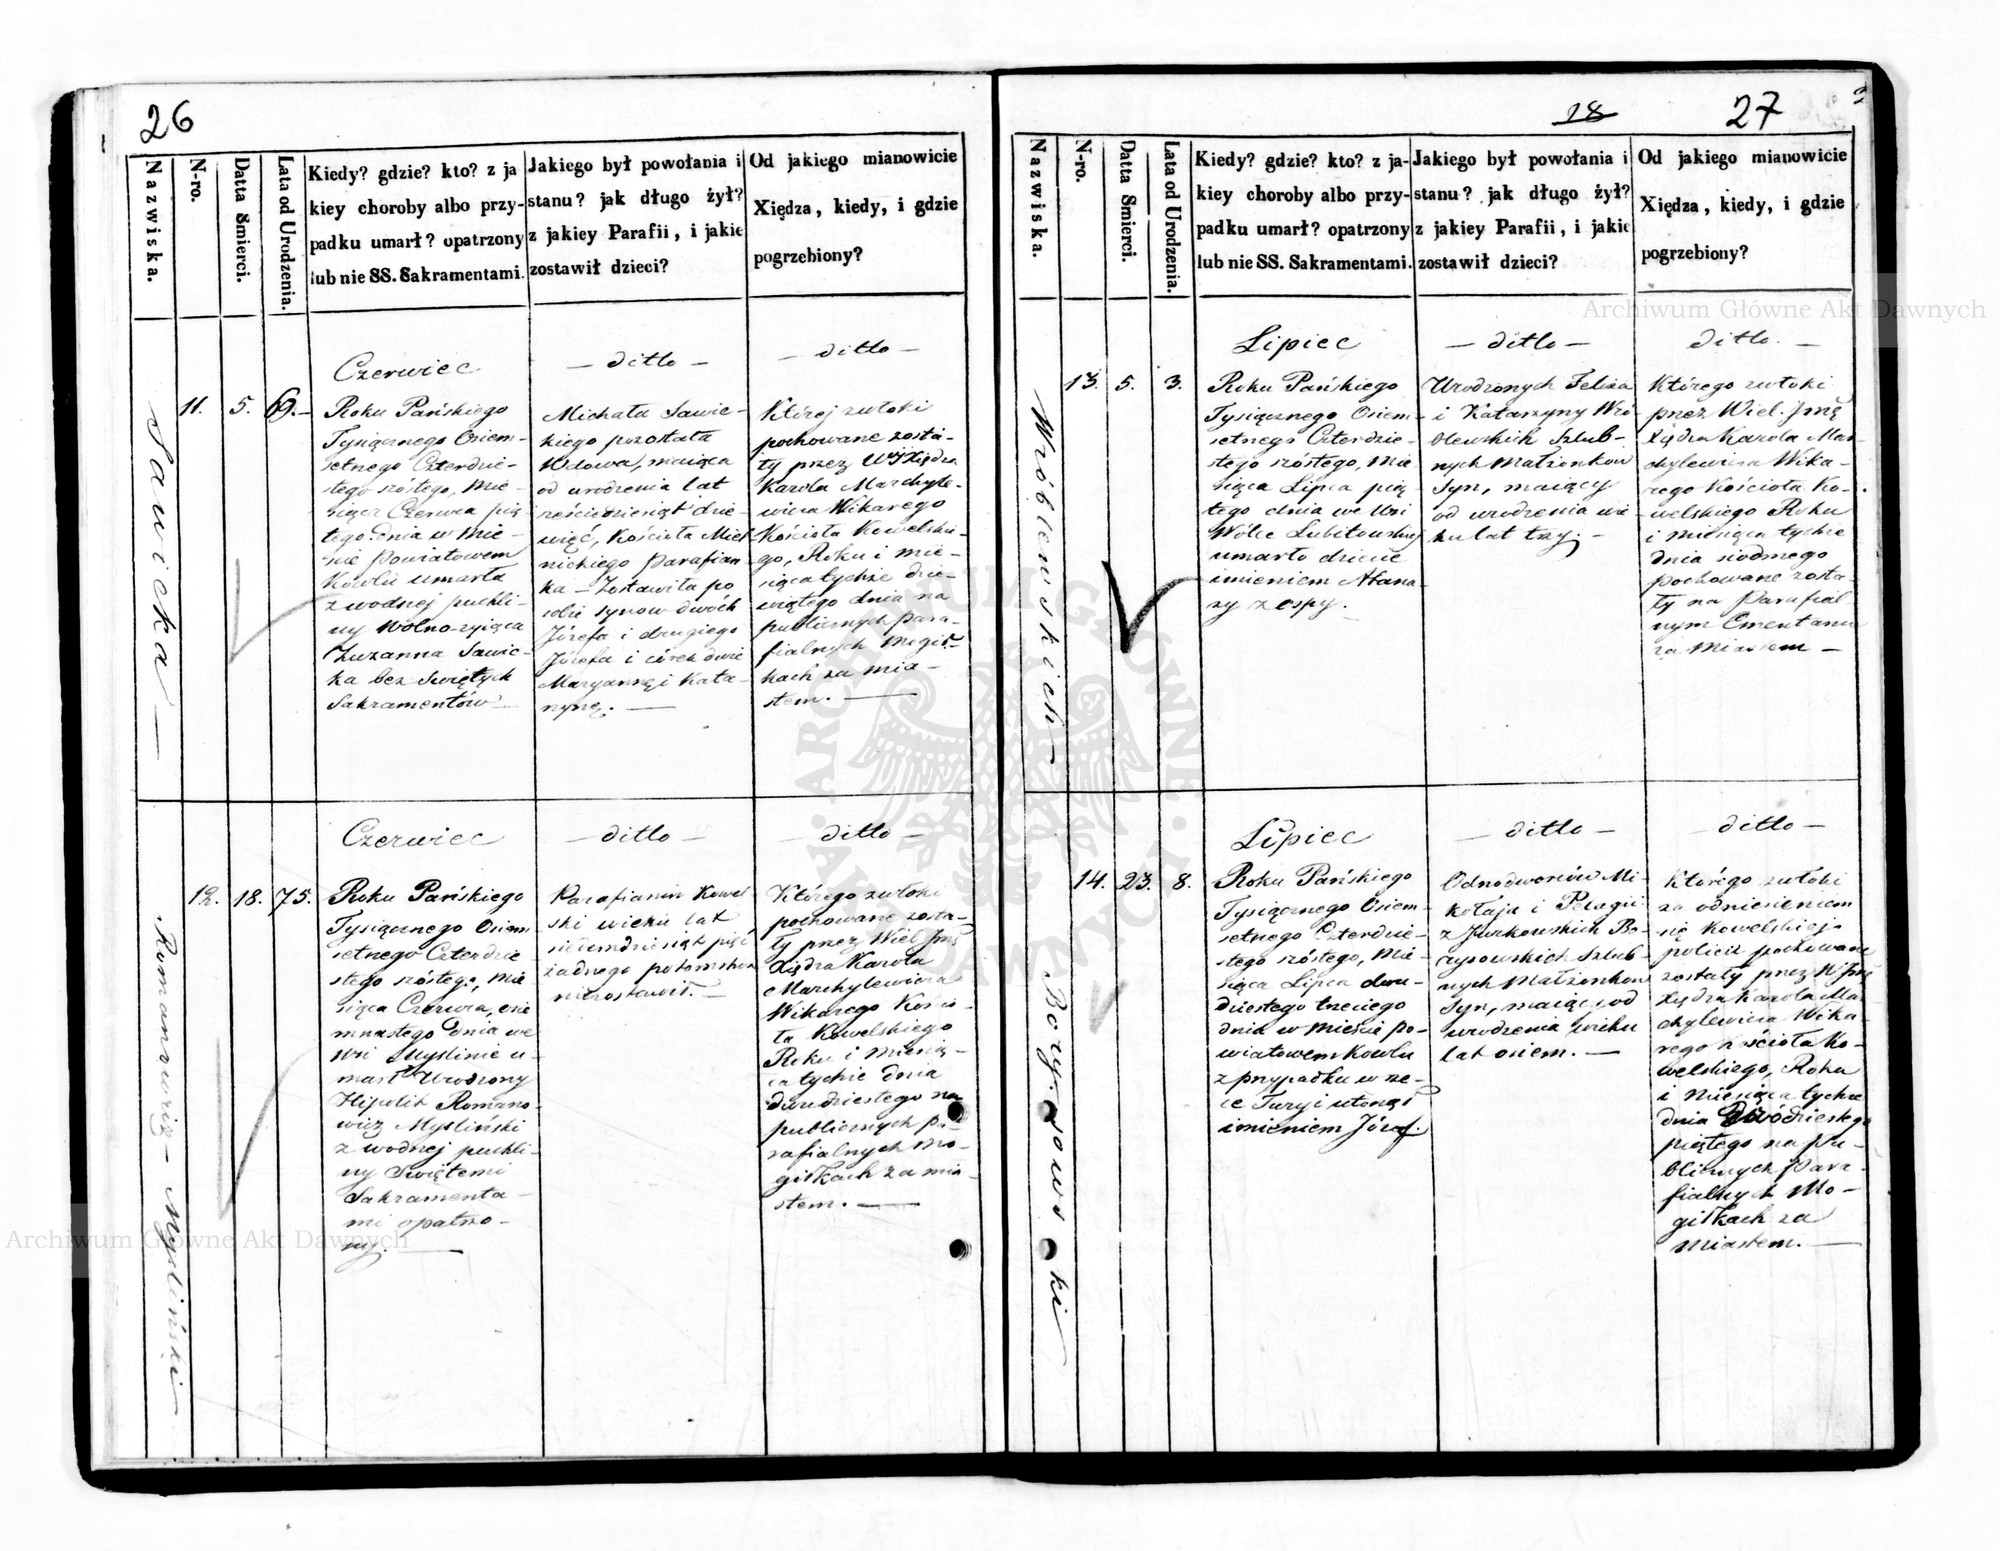 26
Nazwiska.
N-ro.
Datta Smierci.
Lata od Urodzenia.
Kiedy? gdzie? kto? z ja
kiey choroby albo przy-
padku umarł? opatrzony
lub nie SS. Sakramentami.
Jakiego był powołania i
stanu? jak długo żył?
z jakiey Parafii, i jakie
zostawił dzieci?
Od jakiego mianowicie
Xiędza, kiedy, i gdzie
pogrzebiony?
Sawicka —
11.
5.
69.—
Czerwiec
Roku Pańskiego
Tysiącznego Osiem-
setnego Czterdzie-
stego szóstego, Mie-
siąca Czerwca pią
tego dnia w Mie-
ście Powiatowem
Kowlu umarła
z wodnej puchli-
ny Wolno-żyjąca
Zuzanna Sawic-
ka bez Świętych
Sakramentów —
— ditto —
Michała Sawic-
kiego pozostała
Wdowa, maiąca
od urodzenia lat
sześćdziesiąt dzie-
więć, Kościoła Miel
nickiego Parafian
ka — Zostawiła po
sobie synow dwóch
Józefa i drugiego
Józefa i córek dwie
Maryannę i Kata-
rzynę. —
— ditto —
Której zwłoki
pochowane zosta-
ły przez WJXiędza
Karola Marchyle-
wicza Wikarego
Kościoła Kowelskie-
go, Roku i Mie-
siąca tychże dzie-
wiątego dnia na
publicznych para-
fialnych Mogił-
kach za mia-
stem. —
Romanowicz — Mysliński
12.
18.
75.
Czerwiec
Roku Pańskiego
Tysiącznego Osiem
setnego Czterdzie
stego szóstego, Mie
siąca Czerwca, osie
mnastego dnia we
Wsi Myslinie u-
marł Urodzony
Hipolit Romano-
wicz Mysliński
z wodnej puchli-
ny Świętemi
Sakramenta-
mi opatrzo-
ny. —
— ditto —
Parafianin Kowel
ski wieku lat
siedmdziesiąt pięć
żadnego potomstwa
niezostawił. —
— ditto —
Którego zwłoki
pochowane zosta-
ły przez Wiel Jmę
Xiędza Karola
Marchylewicza
Wikarego Kościo
ła Kowelskiego
Roku i Miesią-
ca tychże dnia
dwudziestego na
publicznych pa
rafialnych Mo-
giłkach za mia-
stem. —
18
27
Nazwiska.
N-ro.
Data Smierci.
Lata od Urodzenia.
Kiedy? gdzie? kto? z ja-
kiey choroby albo przy-
padku umarł? opatrzony
lub nie SS. Sakramentami.
Jakiego był powołania i
stanu? jak długo żył?
z jakiey Parafii, i jakie
zostawił dzieci?
Od jakiego mianowicie
Xiędza, kiedy, i gdzie
pogrzebiony?
Wróblewskich —
13.
5.
3.
Lipiec
Roku Pańskiego
Tysiącznego Osiem-
setnego Czterdzie-
stego szóstego, Mie
siąca Lipca pią
tego dnia we Wsi
Wólce Lubitowskiej
umarło dziecie
imieniem Atana-
zy z ospy.
— ditto —
Urodzonych Felixa
i Katarzyny Wró-
blewskich Szlub-
nych Małżonkow
Syn, maiący
od urodzenia wie
ku lat trzy. —
ditto. —
Którego zwłoki
przez Wiel. Jmę
Xiędza Karola Mar-
chylewicza Wika-
rego Kościoła Ko-
welskiego Roku
i Miesiąca tychże
dnia siódmego
pochowane zosta-
ły na Parafial
nym Cmentarzu
za Miastem —
Borysowski
14.
23.
8.
Lipiec
Roku Pańskiego
Tysiącznego Osiem-
setnego Czterdzie-
stego szóstego, Mie-
siąca Lipca dwu-
dziestego trzeciego
dnia w Mieście po-
wiatowem Kowlu
z przypadku w rze-
ce Turyi utonął
imieniem Józef.
— ditto —
Odnodworców Mi-
kołaja i Pelagii
z Jurkowskich Bo-
rysowskich Szlub-
nych Małżonkow
Syn, maiący od
urodzenia wieku
lat osiem. —
— ditto —
Którego zwłoki
za odniesieniem
się Kowelskiej
policii pochowane
zostały przez WJmę
Xiędza Karola Mar
chylewicza Wika-
rego Kościoła Ko-
welskiego, Roku
i Miesiąca tychże
dnia Dwódziestego
piątego na Pu-
blicznych Para-
fialnych Mo-
giłkach za
Miastem. —
Archiwum Główne Akt Dawnych
Archiwum Główne Akt Dawnych
ARCHIWUM GŁÓWNE AKT DAWNYCH